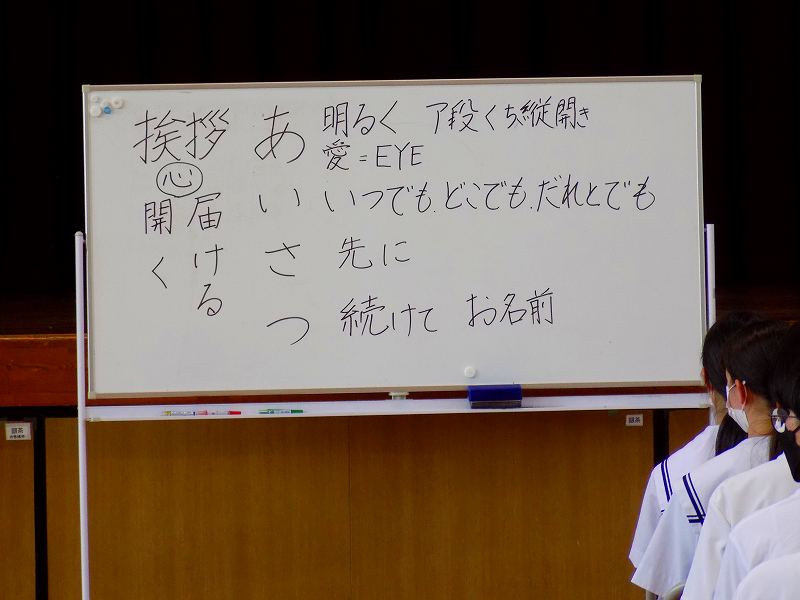 挨拶
心
開く
届ける
あいさつ
明るく ア段くち縦開き
愛=EYE
いつでも、どこでも、だれとでも
先に
続けて お名前